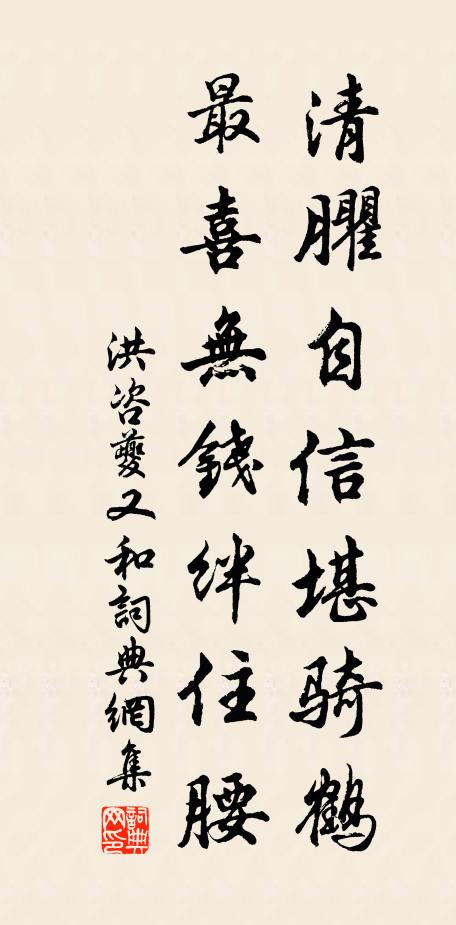 清臞自信堪骑鹤
最喜無錢絆住腰
洪咨夔又和詞典網集
詞典网印